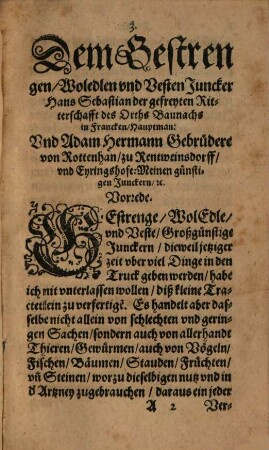 3.
Dem Gestren
gen/Woledlen vnd Vesten Juncker
Hans Sebastian der gefreyten Rit-
terschafft des Orths Baunachs
in Francken/Hauptman:
Vnd Adam Hermann Gebrüdere
von Rottenhan/zu Rentweinsdorff/
vnd Eyringshofe: Meinen günsti-
gen Junckern/ꝛc.
Vorrede.
GEstrenge/WolEdle/
vnd Veste/Großgünstige
Junckern/dieweil jetziger
zeit vber viel Dinge in den
Truck geben werden/habe
ich nit vnterlassen wollen/diß kleine Tra-
ctetlein zu verfertigē. Es handelt aber das-
selbe nicht allein von schlechten vnd gerin-
gen Sachen/sondern auch von allerhandt
Thieren/Gewürmen/auch von Vögeln/
Fischen/Bäumen/Stauden/Früchten/
vñ Steinen/worzu dieselbigen nutz vnd in
d̕ Artzney zugebrauchen/daraus ein jeder
A 2 Ver-